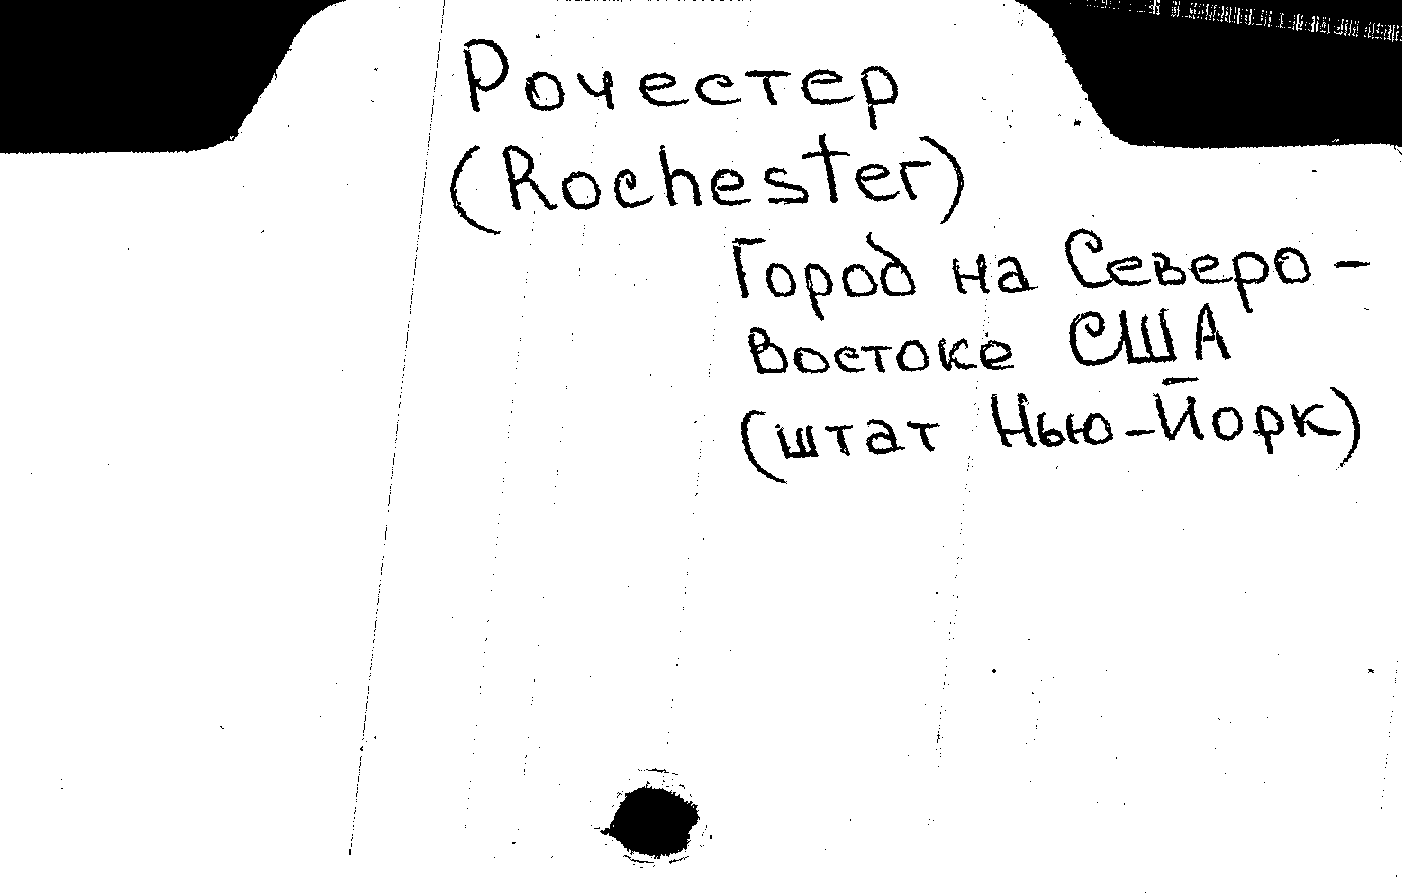 Рочестер
(Rochester)
Город на Северо-
Востоке США
(штат Нью-Йорк)